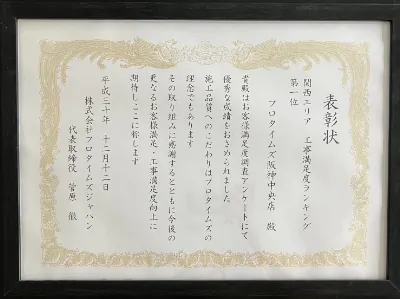 表彰状
関西エリア 工事満足度ランキング
第一位
プロタイムズ阪神中央店 殿
貴殿はお客様満足度調査アンケートにて
優秀な成績をおさめられました
施工品質へのこだわりはプロタイムズの
理念でもあります
その取り組みに感謝するとともに今後の
更なるお客様満足・工事満足度向上に
期待しここに称します
平成二十年 十二月十二日
株式会社プロタイムズジャパン
代表取締役 菅原 徹